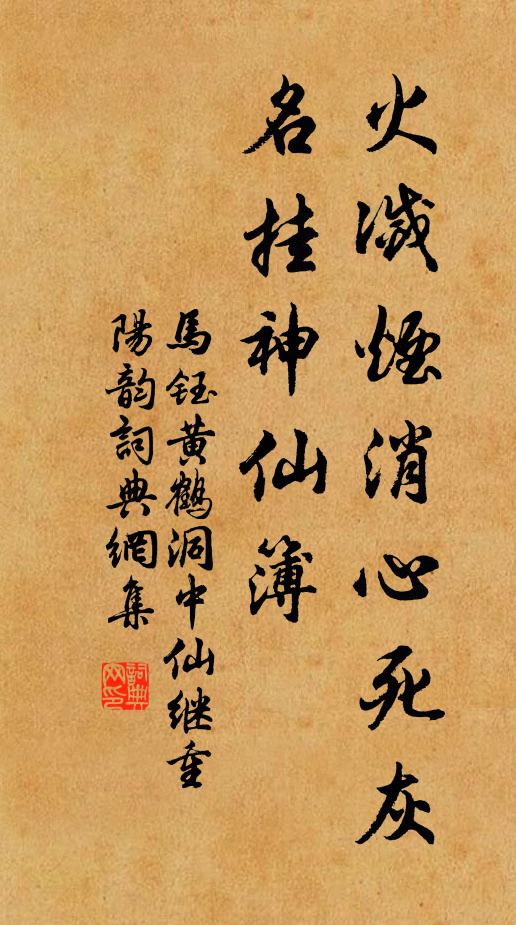 火滅煙消心死灰
名挂神仙簿
馬鈺黄鶴洞中仙继重
陽韵詞典網集
詞典網印